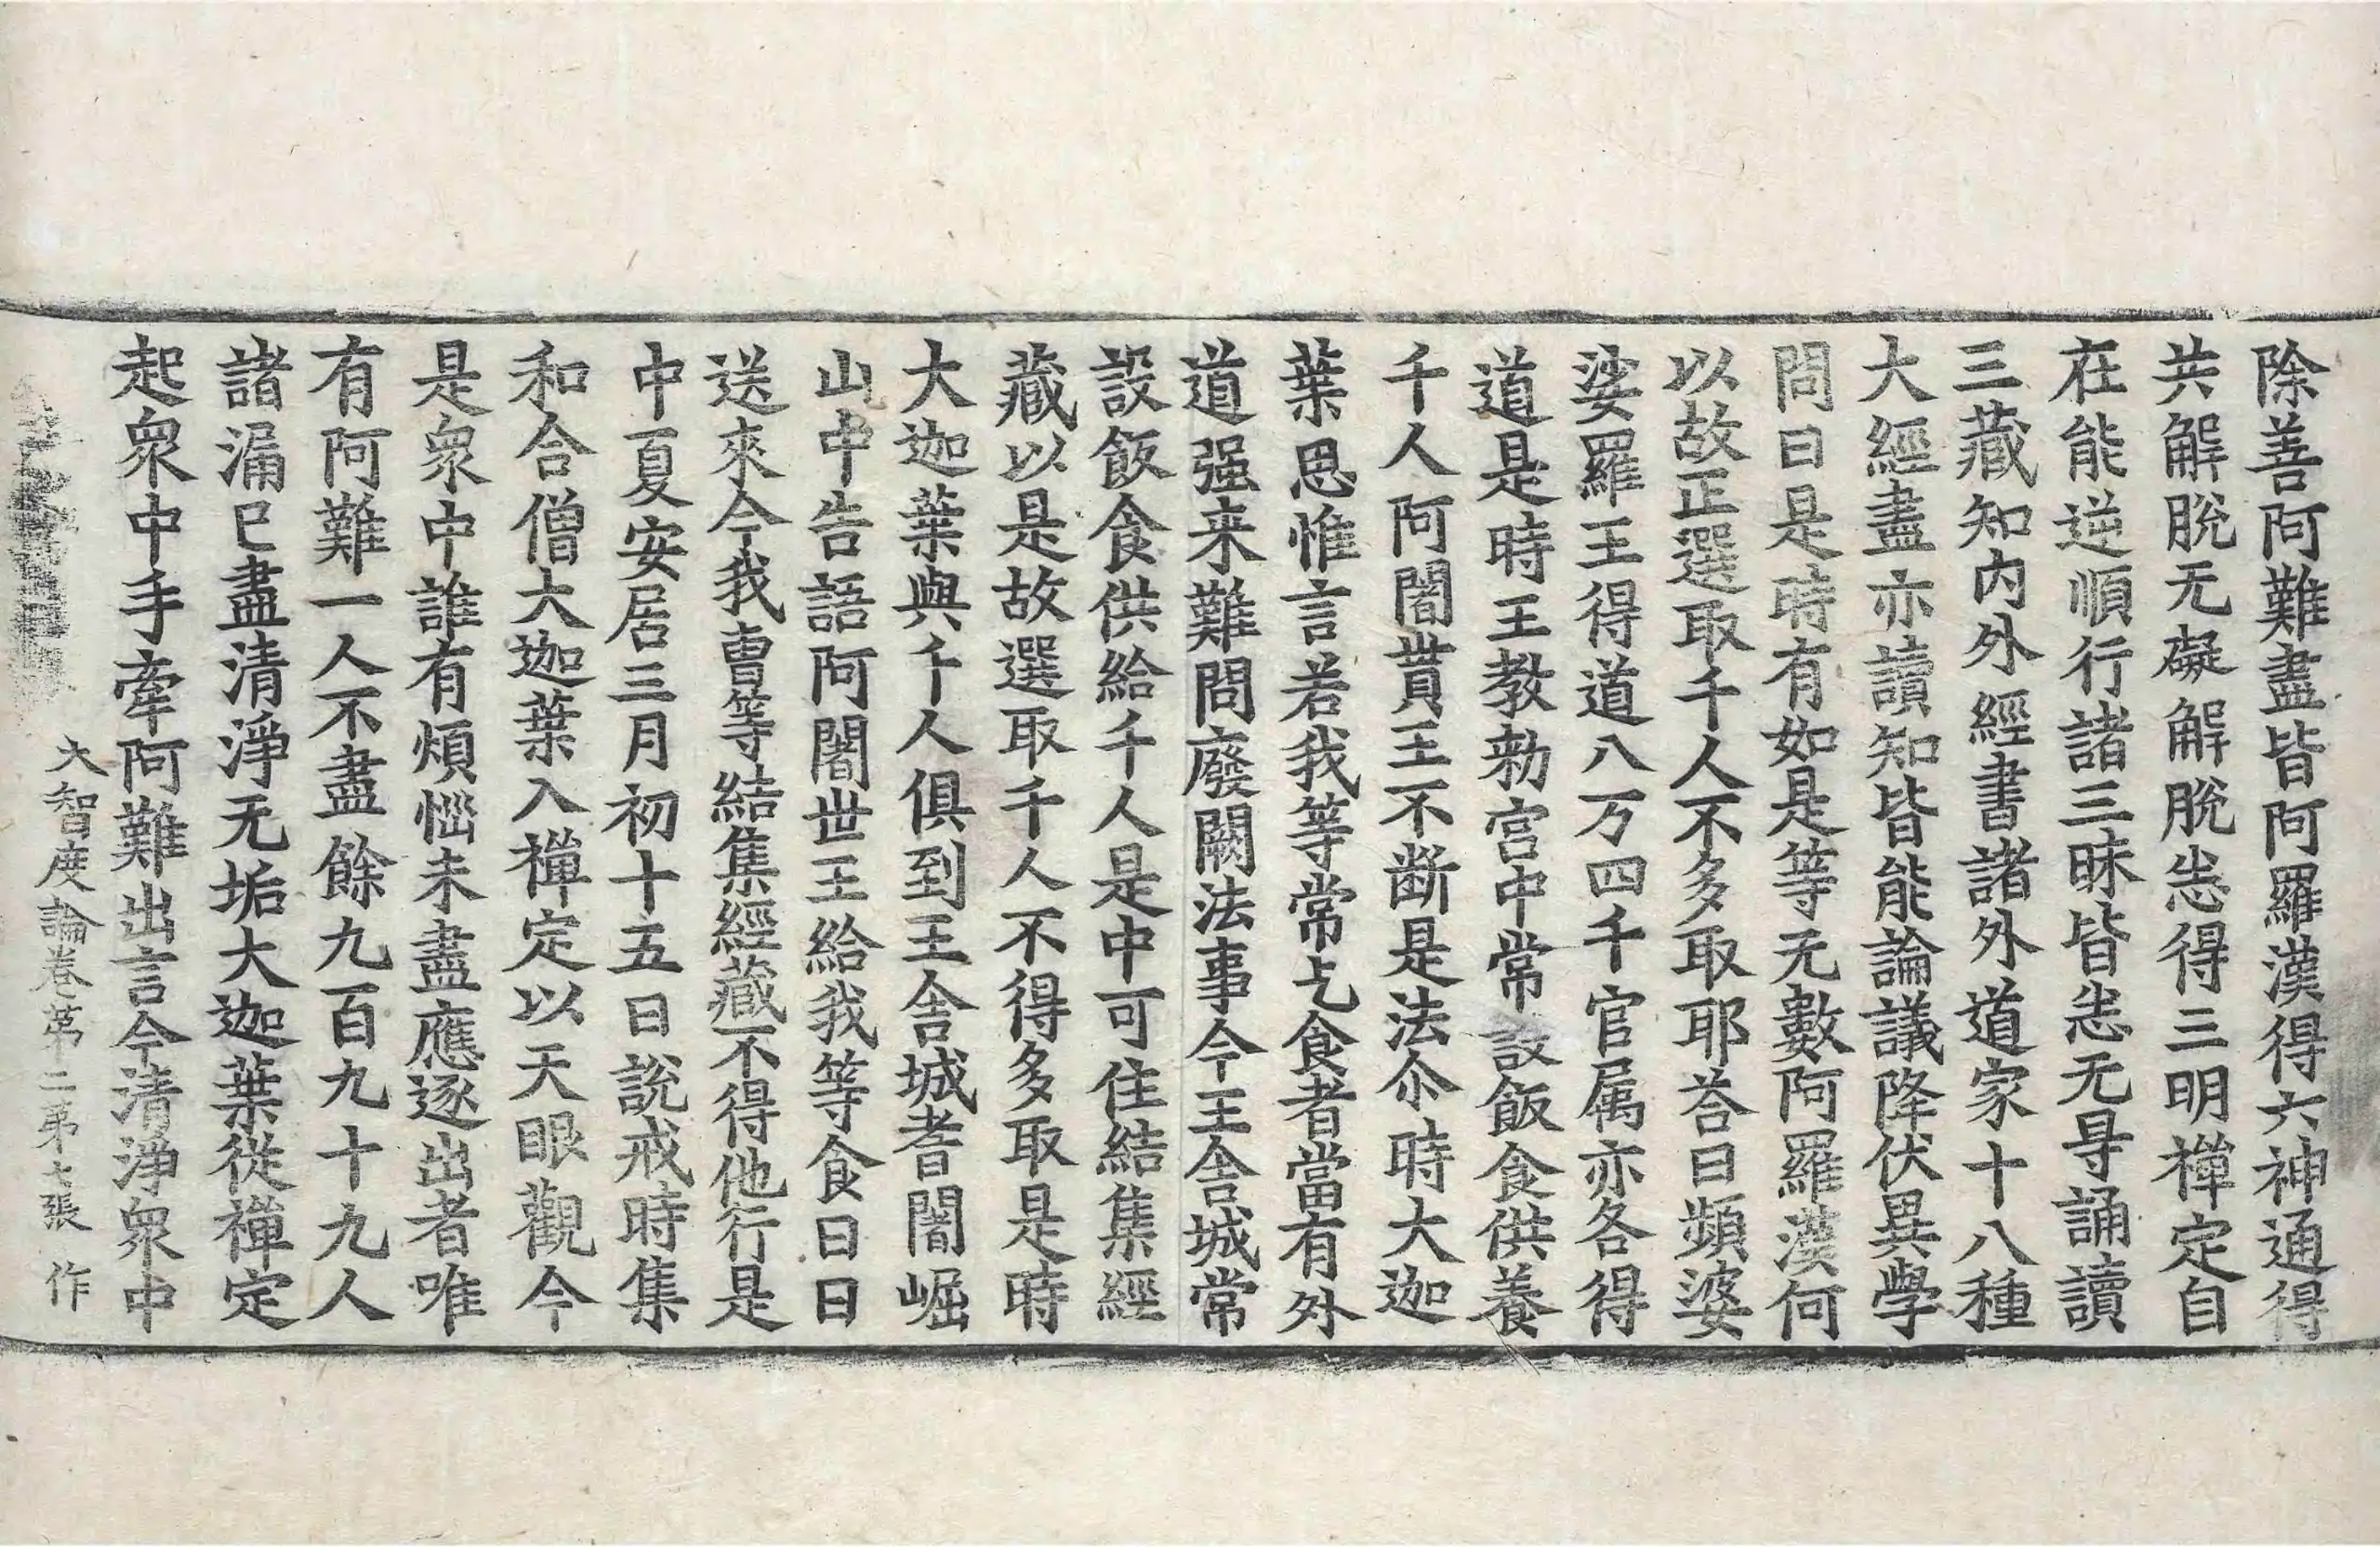 除善阿難盡皆阿羅漢得六神通得
共解脫无礙解脫悉得三明禪定自
在能逆順行諸三昧皆悉无㝵誦讀
三藏知內外經書諸外道家十八種
大經盡亦讀知皆能論議降伏異學
問曰是時有如是等无數阿羅漢何
以故正選取千人不多取耶荅曰頻婆
娑羅王得道八万四千官属亦各得
道是時王教勑宮中常設飯食供養
千人阿闍貰王不斷是法尒時大迦
葉思惟言若我等常乞食者當有外
道强来難問廢闕法事今王舍城常
設飯食供給千人是中可住結集經
藏以是故選取千人不得多取是時
大迦葉與千人俱到王舍城耆闍崛
山中告語阿闍世王給我等食日日
送來今我曹等結集經藏不得他行是
中夏安居三月初十五日說戒時集
和合僧大迦葉入禪定以天眼觀今
是衆中誰有煩惱未盡應逐出者唯
有阿難一人不盡餘九百九十九人
諸漏已盡清淨无垢大迦葉從禪定
起衆中手牽阿難出言今清淨衆中
大智度論卷第二 第七張 作